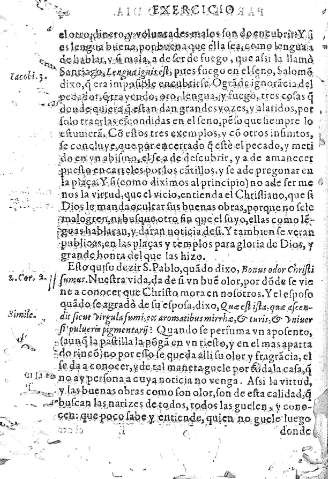 EXERCICIO
el otro, dinero, y voluntades malos son de encubrir. Y si
es lengua buena, por buena que ella sea, como lengua a
de hablar, y si mala, a de ser de fuego, que assi la llamò
Iacobi. 3.
Santiago, Lengua ignis est, pues fuego en el seno, Salomō
dixo, q̃ era impossible encubrirse. O grāde ignorācia del
pecador, q̃ trayendo, oro, lengua, y fuego, tres cosas q̃
donde quiera q̃ estan dan grandes vozes, y alaridos, por
solo traerlas escondidas en el seno, pēso que hempre lo
estuuierā. Cō estos tres exemplos, y cō otros infinitos,
se concluye, que por encerrado q̃ estè el pecado, y meti
do en vn abismo, el se a de descubrir, y a de amanecer
puesto en carteles por los cātillos, y se a de pregonar en
la plaça. Y si (como diximos al principio) no a de ser me
nos la virtud, que el vicio, entienda el Christiano, que si
Dios le manda ocultar sus buenas obras, porque no se le
malogren, no busque otro fin que el suyo, ellas como lē
guas hablaran, y daran noticia de si. Y tambien se veran
publicas, en las plaças y templos para gloria de Dios, y
grande honra del que las hizo.
Esto quiso dezir S. Pablo, quādo dixo, Bonus odor Christi
2. Cor. 2.
sumus. Nuestra vida, da de si vn buē olor, por dōde se vie
ne a conocer que Christo mora en nosotros. Y el esposo
quādo se agradò de su esposa, dixo, Quæ est ista, quæ ascen-
Simile.
dit sicut virgula fumi, ex aromatibus mirrhæ, & turis, & vniuer
si pulueris pigmentarij? Quando se perfuma vn aposento,
(aunq̃ la pastilla la pōgā en vn tiesto, y en el mas aparta
do rincō) no por esso se queda alli su olor y fragrācia, el
se da a conocer, y de tal manera guele por toda la casa, q̃
no ay persona a cuya noticia no venga. Assi la virtud,
y las buenas obras como son olor, son de esta calidad, q̃
buscan las narizes de todos, todos las guelen, y cono-
cen: que poco sabe y entiende, quien no guele luego
donde